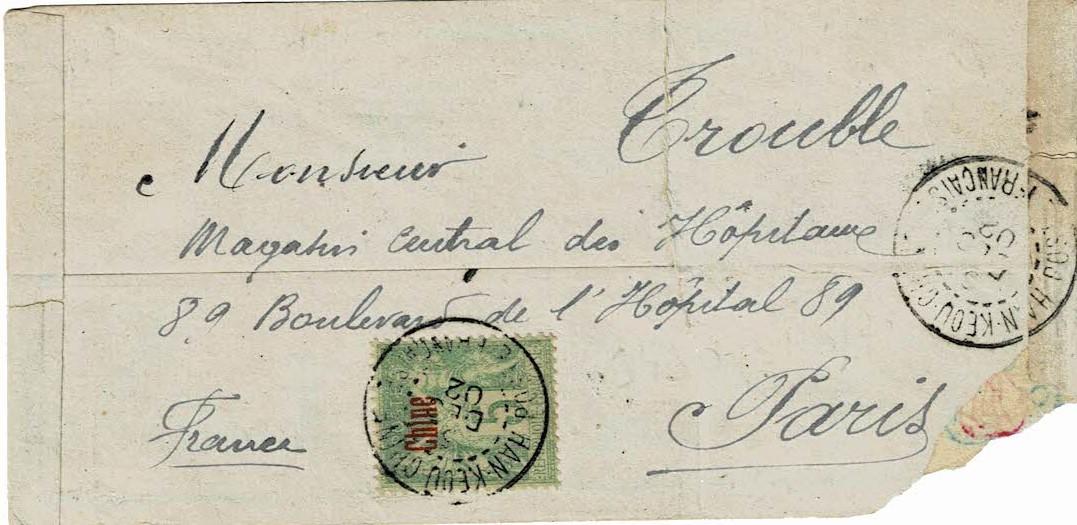 Monsieur Trouble
Magasin Central des Hôpitaux
89 Boulevard de l'Hôpital 89
Paris
France
Chine
5
HAN-KEOU-CHINE
02
HAN-KEOU-CHINE
FRANÇAISE
02